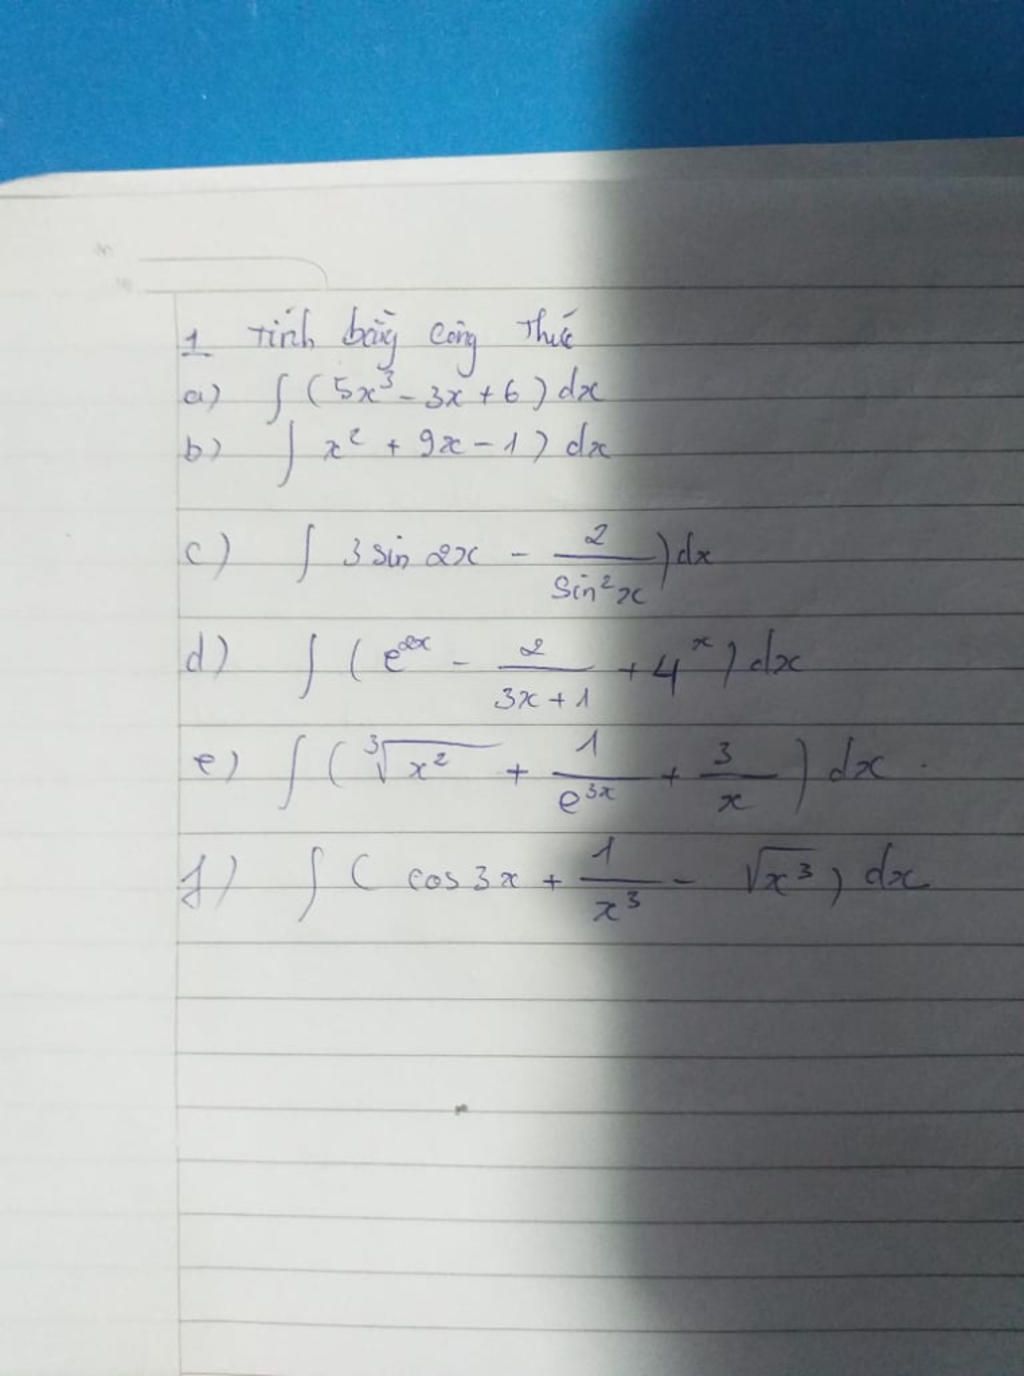 1 Tính bằng công thức
a) ∫ (5x³ - 3x + 6) dx
b) ∫ x² + 9x - 1) dx
c) ∫ 3 sin 2x - 2/sin²x) dx
d) ∫ (e²ˣ - 2/(3x + 1) + 4ˣ) dx
e) ∫ (∛x² + 1/e³ˣ + 3/x) dx.
f) ∫ (cos 3x + 1/x³ - √x³) dx